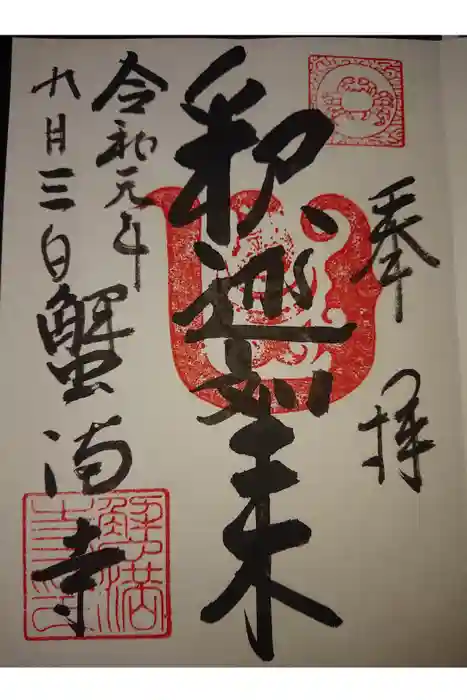 奉拝
釈迦如来
令和元年
九月三日
蟹満寺